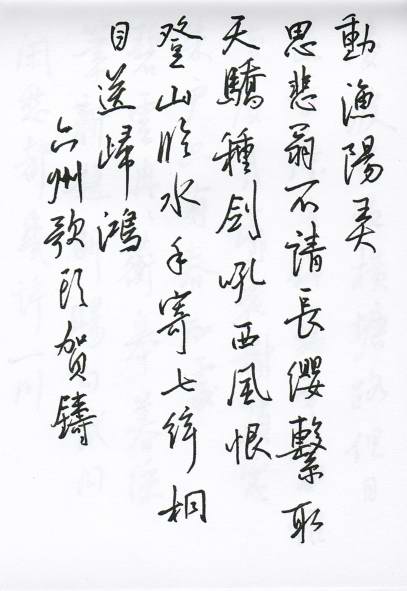 動漁陽弄
思悲翁不請長纓繫取
天驕種劍吼西風恨
登山臨水手寄七絃桐
目送歸鴻
六州歌頭賀鑄